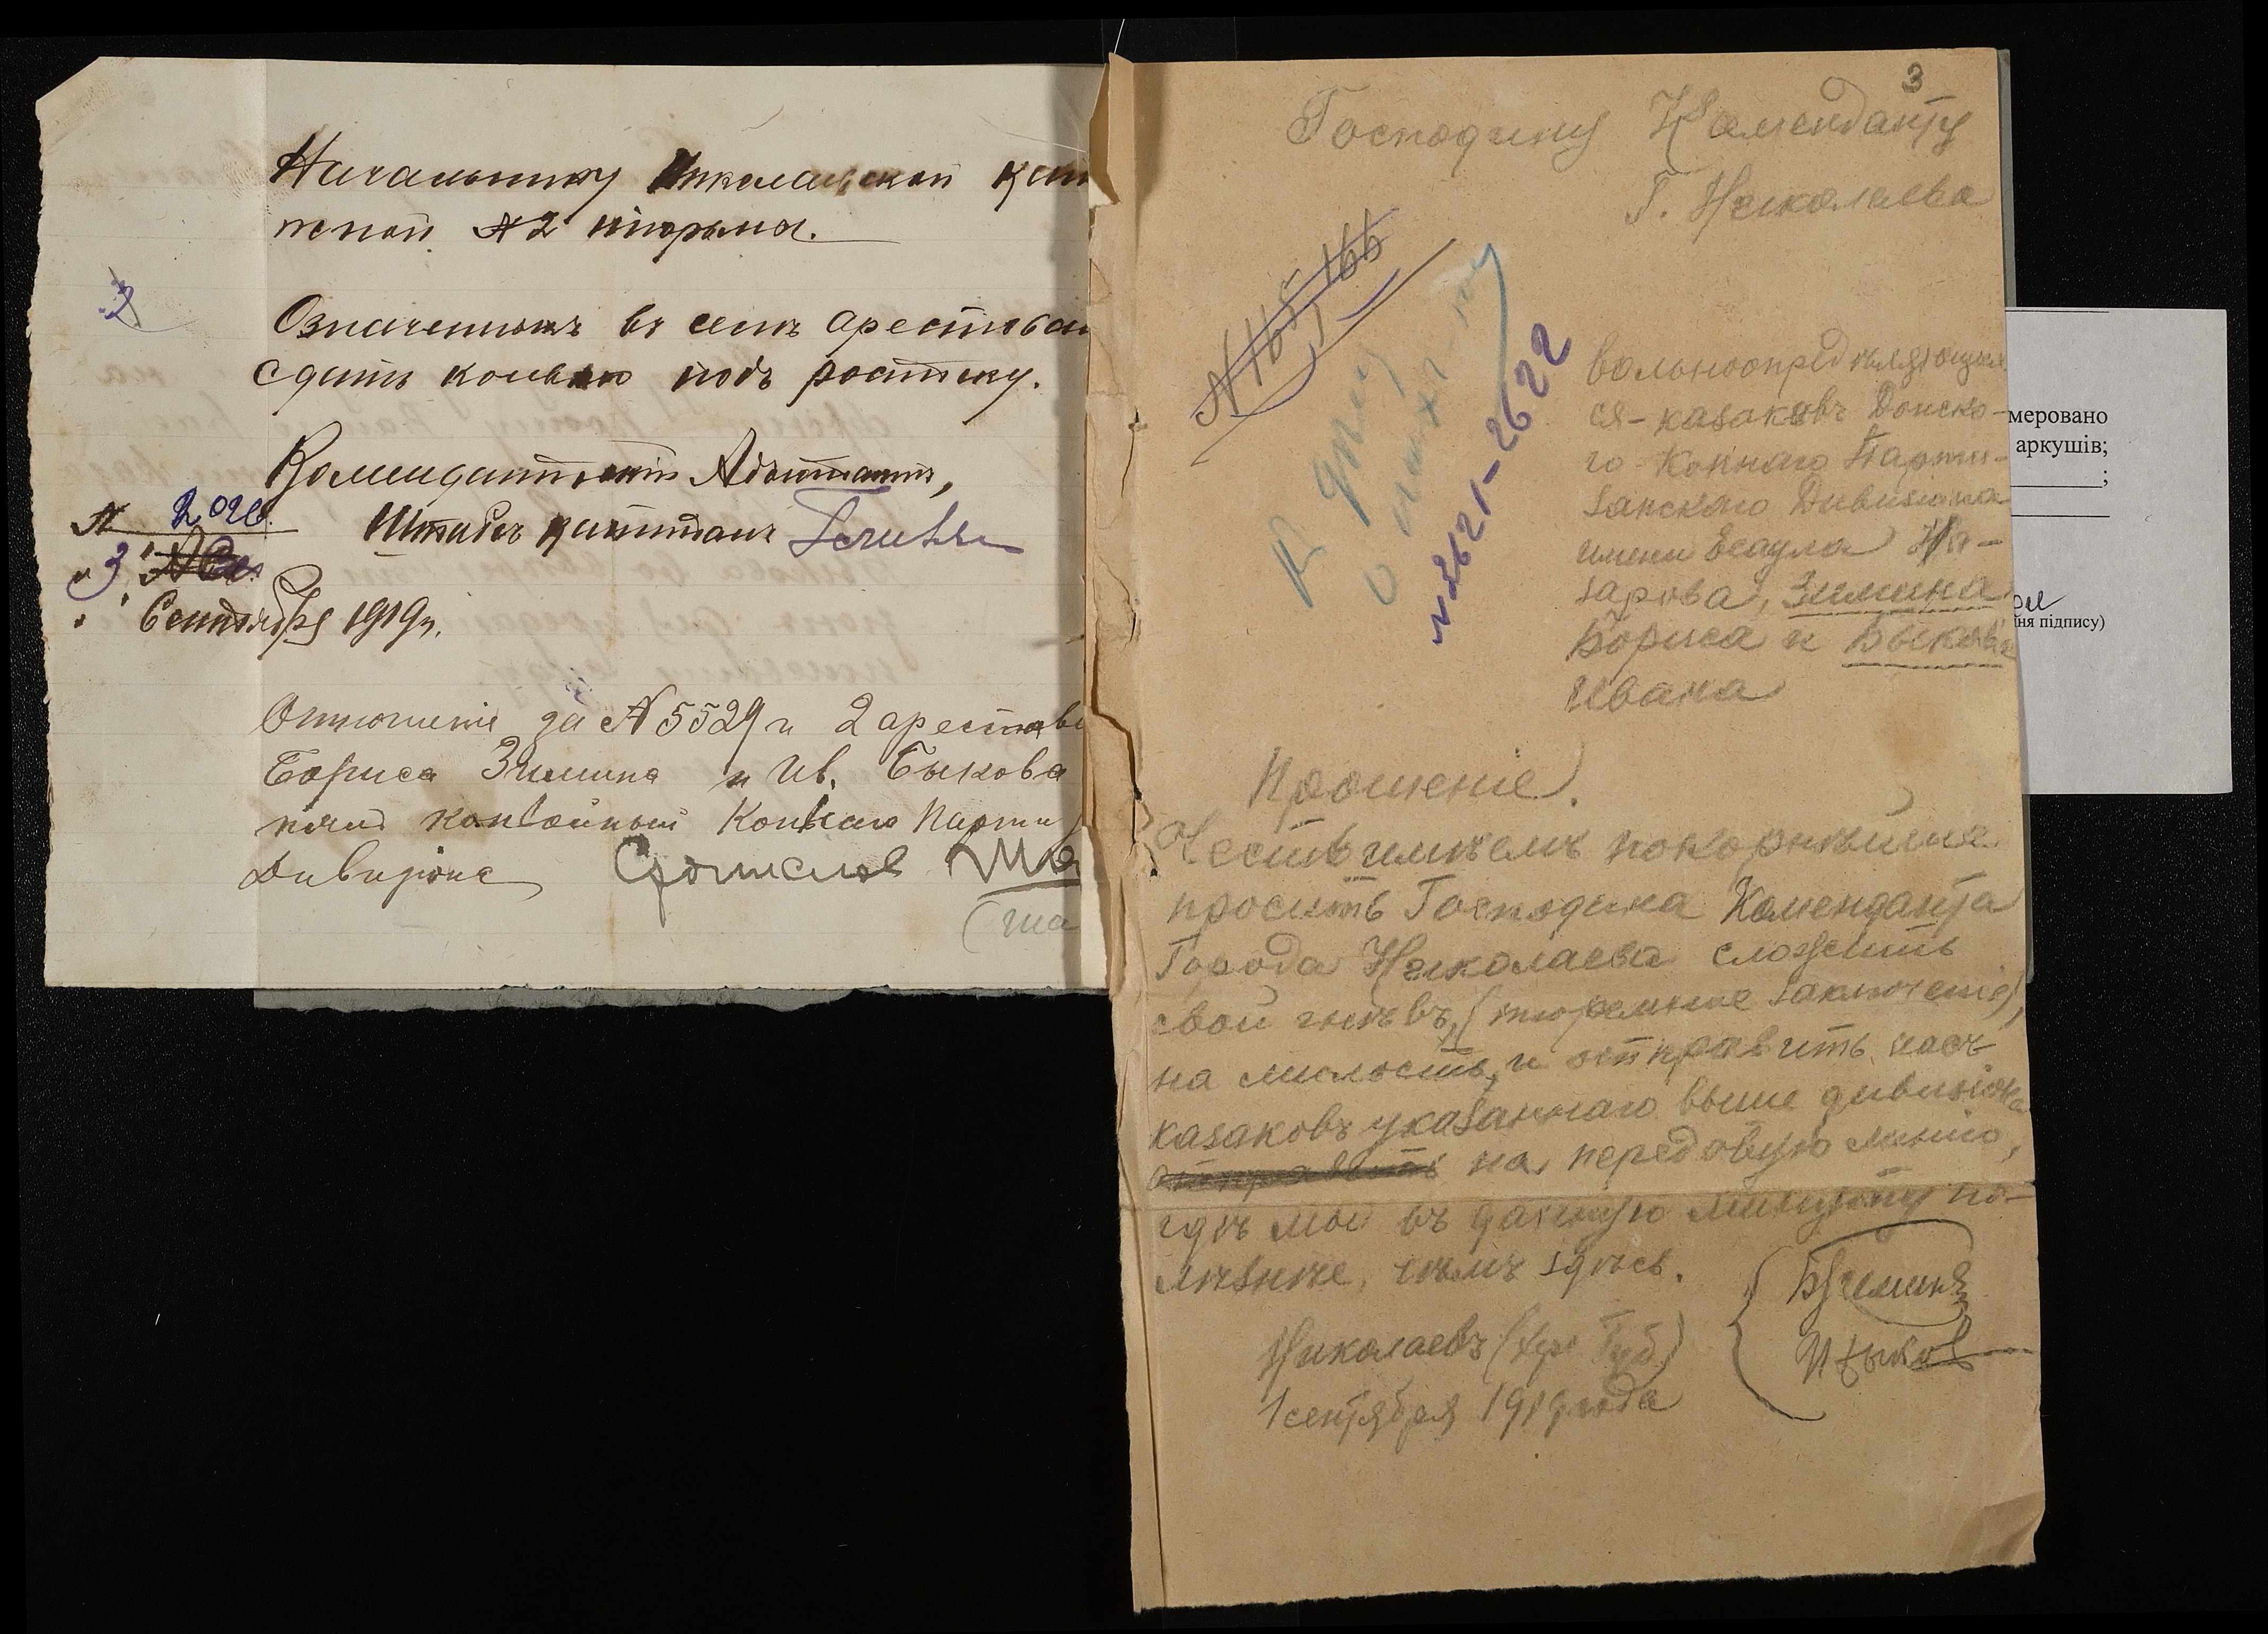 Начальнику Николаевской кат
жной №2 тюрьмы.
Означенныхъ въ семъ арестован
сдать конвою подъ росписку.
Комендантскій Адъютантъ,
Штабсъ капитанъ
№ 2026
"3"
Сентября 1919 г.
Отношеніе за №5529 и 2 арестов
Бориса Зимина и Ив. Быкова
конвойный Коннаго Парти
Дивизіона
3
Господину Коменданту
Г. Николаева
№165, 166
К дѣлу
№ 2621-2622
Вольноопредѣляющих
ся-казаковъ Донско-
го Коннаго Парти-
занскаго Дивизіона
имени Есаула На-
зарова, Зимина
Бориса и Быкова
Ивана
Прошеніе.
Честь имѣемъ покорнѣйше
просить Господина Коменданта
Города Николаева сложить
свой гнѣвъ, (тюремное заключеніе),
на милость, и отправить насъ
казаковъ указаннаго выше дивизіона
отправить на передовую линію,
гдѣ мы въ данную минуту по-
лѣзнѣе, чѣмъ здѣсь.
Николаевъ (Хер. Губ.)
1 сентября 1919 года
БЗиминъ
И Быков
меровано
аркушів;
;
ня підпису)